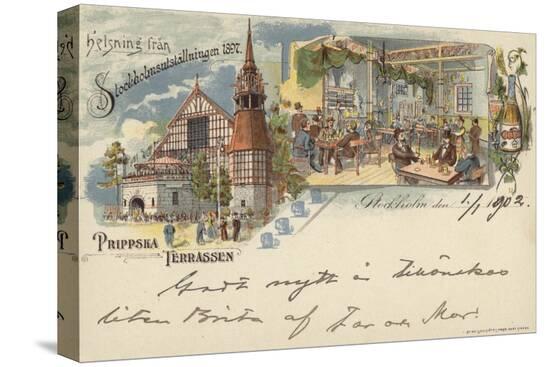 Helsning från
Stockholmsutställningen 1897.
PRIPPSKA
TERRASSEN
Stockholm den 1/1 1902.
Godt nytt år tillönskas
liten Brita af Far och Mor!